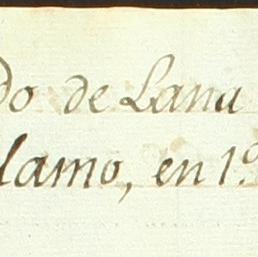 do de Lana
lamo, en 1.º